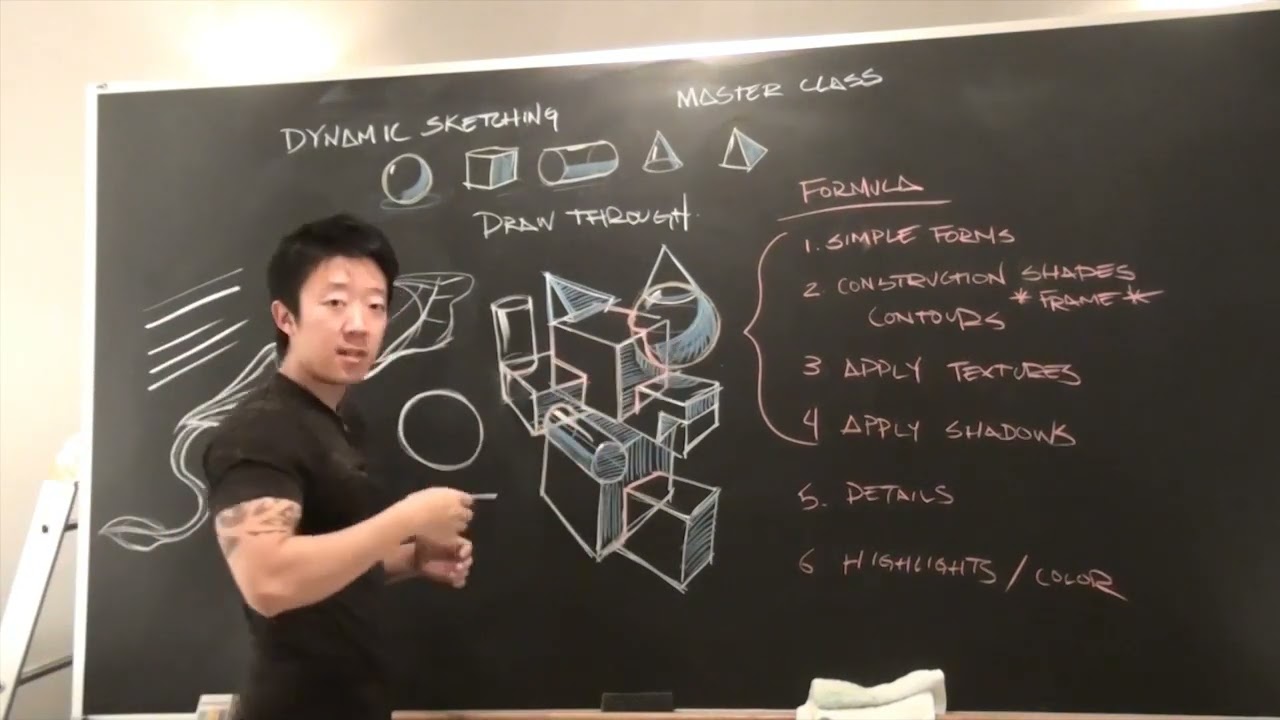 DYNAMIC SKETCHING
MASTER CLASS
DRAW THROUGH
FORMULA
1. SIMPLE FORMS
2 CONSTRUCTION SHAPES
* FRAME *
CONTOURS
3 APPLY TEXTURES
4 APPLY SHADOWS
5. DETAILS
6 HIGHLIGHTS / COLOR